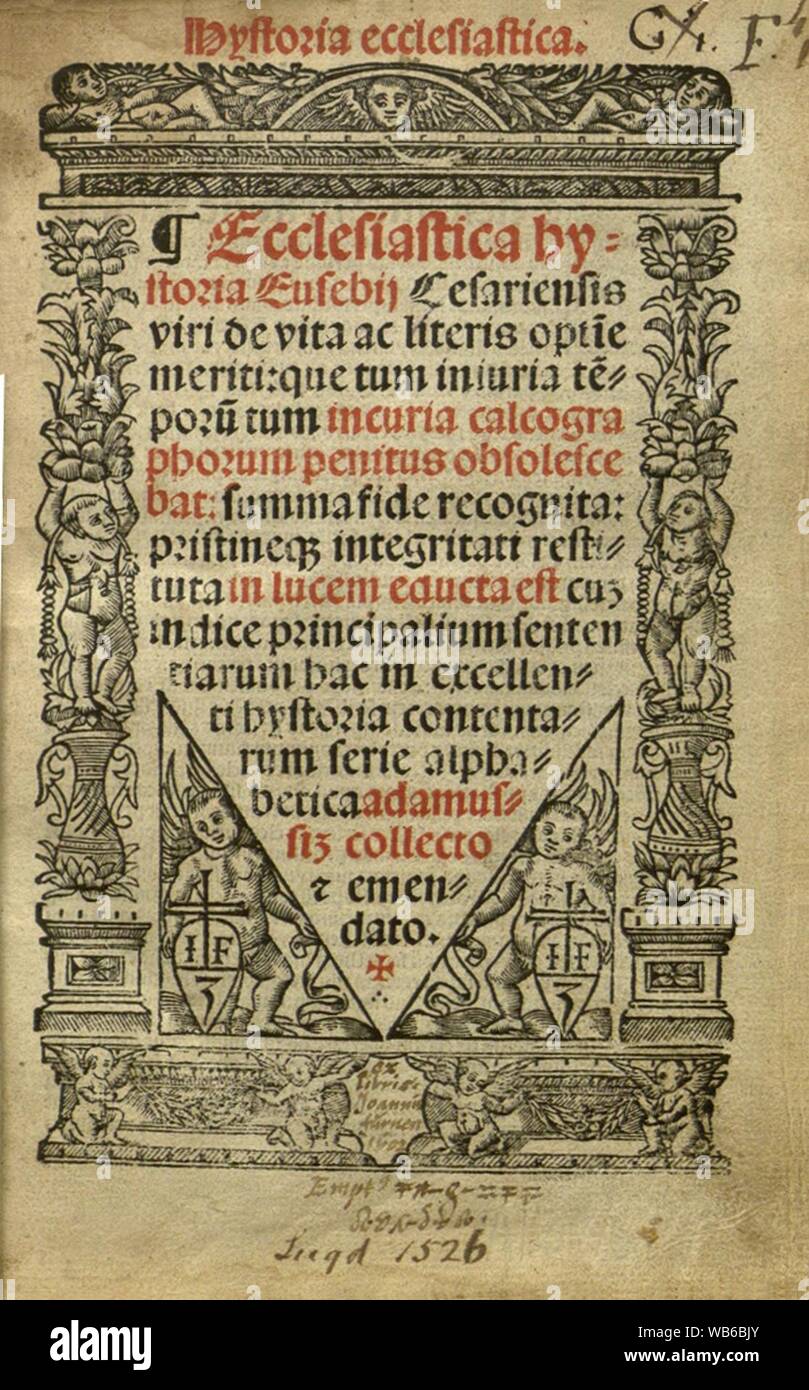 Hystoria ecclesiastica.
¶ Ecclesiastica hy⸗
storia Eusebij Cesariensis
viri de vita ac literis optīe
meriti:que tum iniuria tē⸗
porū tum incuria calcogra
phorum penitus obsolesce
bat: summa fide recognita:
pristineqꝫ integritati resti⸗
tuta in lucem educta est cuꝫ
indice principalium senten
tiarum hac in excellen⸗
ti hystoria contenta⸗
rum serie alpha⸗
betica adamus⸗
siꝫ collecto
⁊ emen⸗
dato.
✠
I F
I F
Ex
Libris
Joannis
Lugd 1526
alamy
Image ID: WB6BJY
www.alamy.com